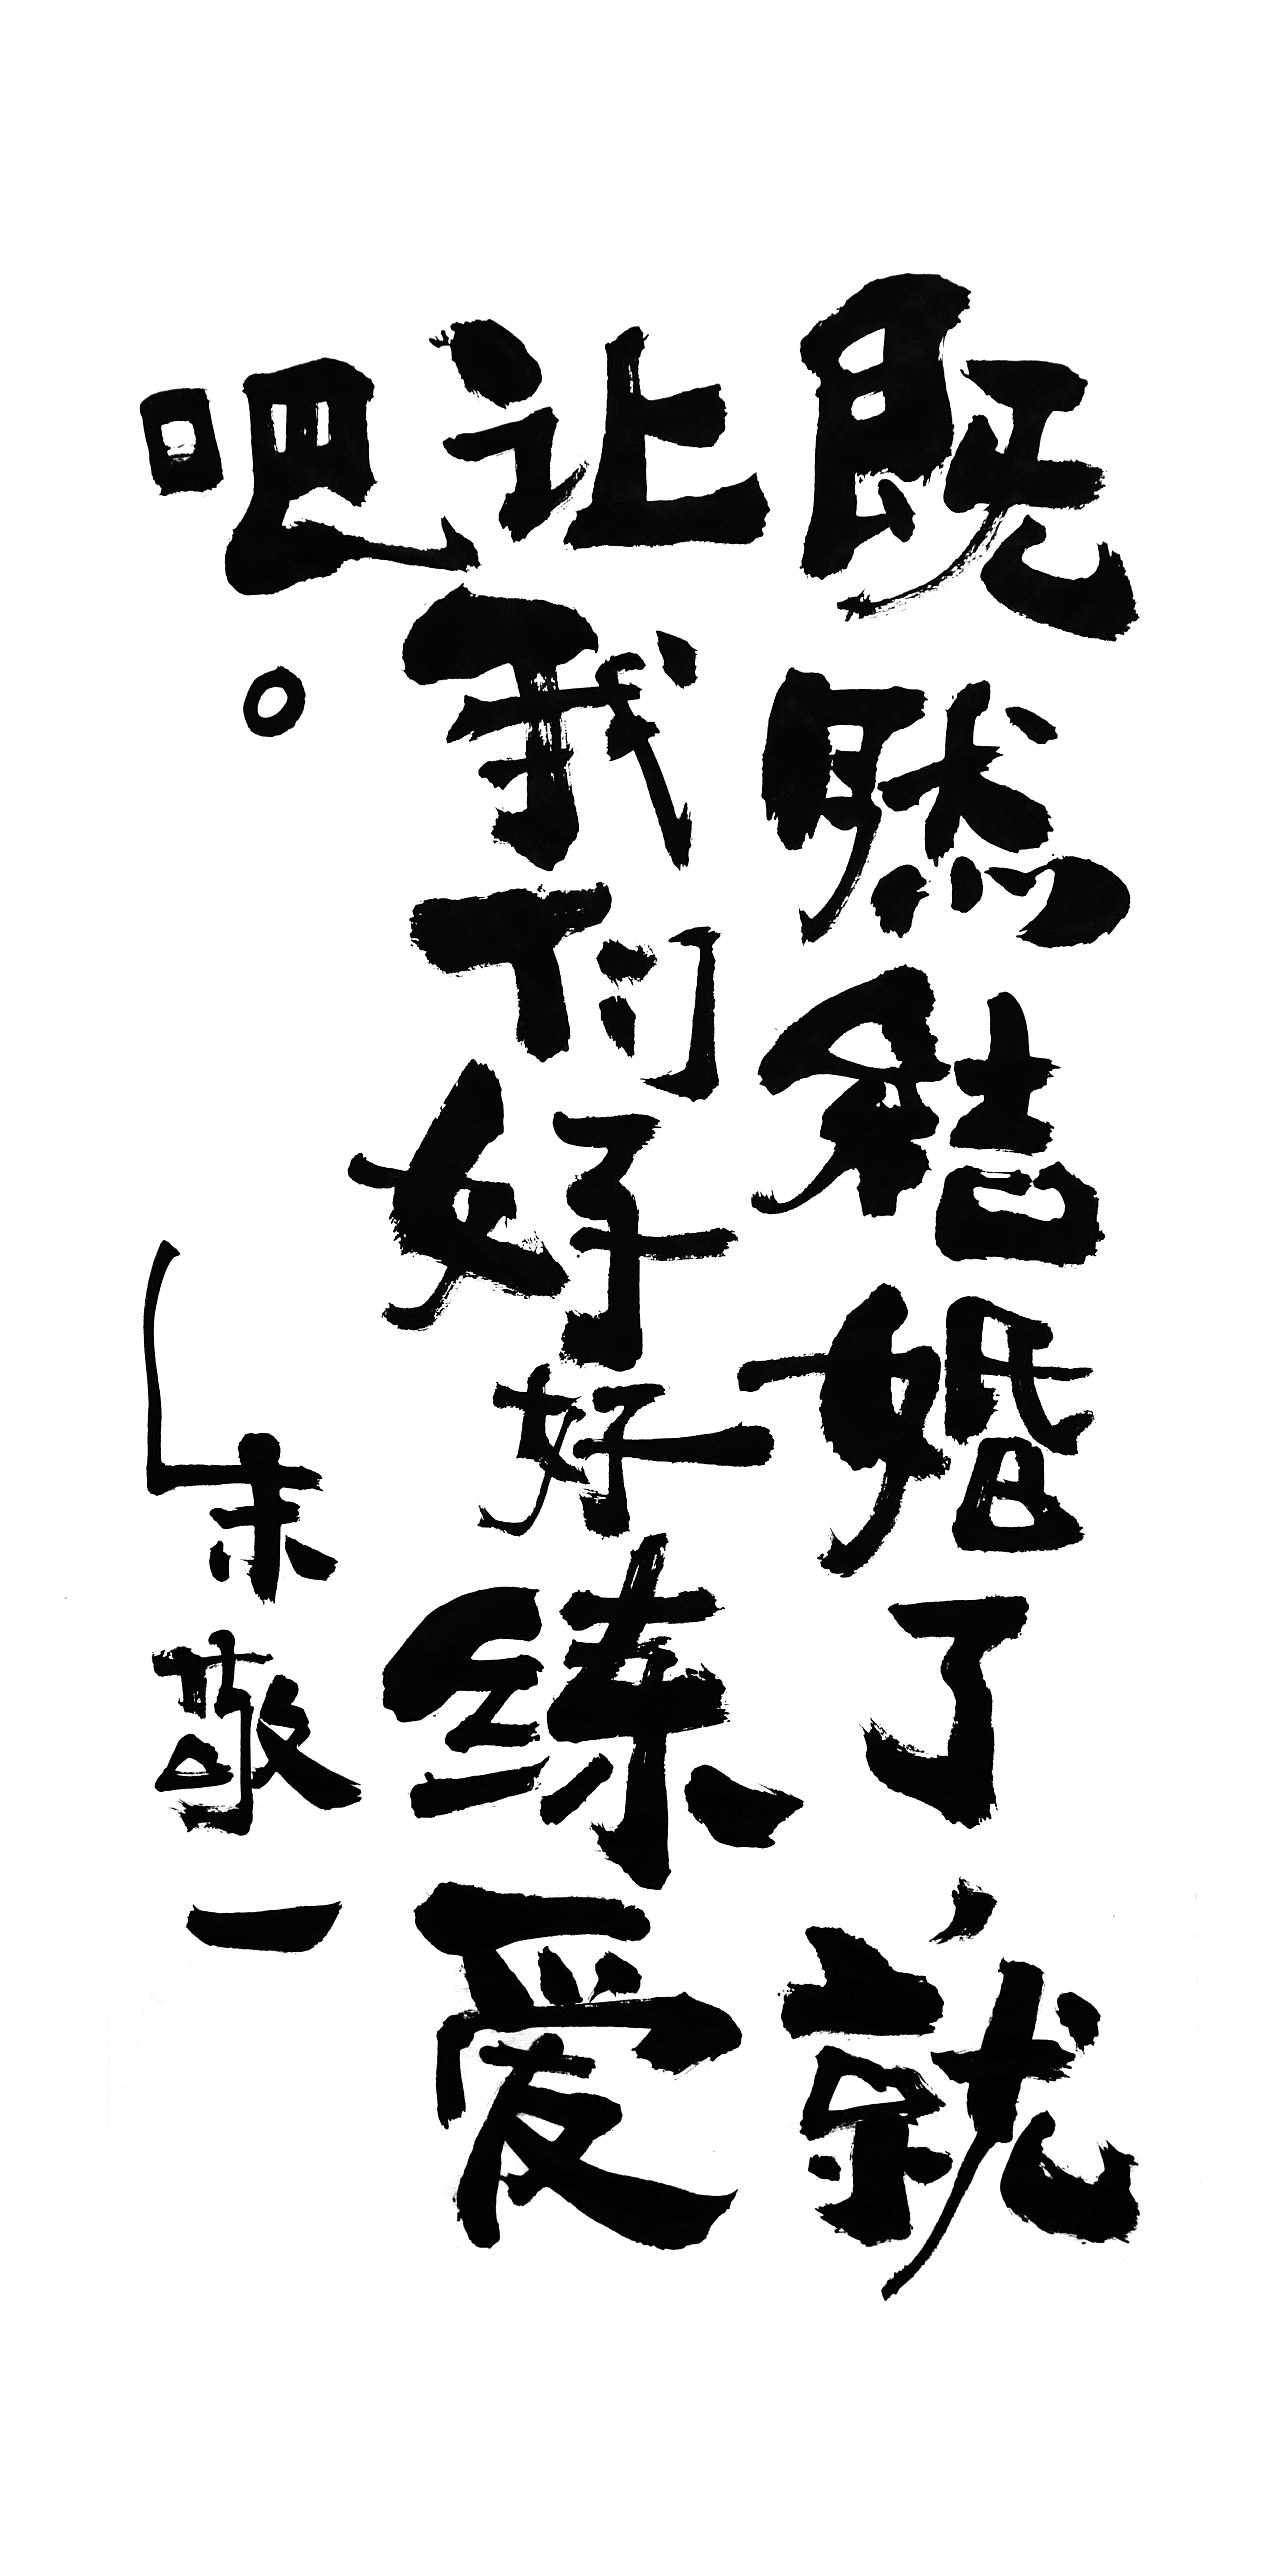 既然结婚了，就
让我们好好练爱
吧。
朱敬一